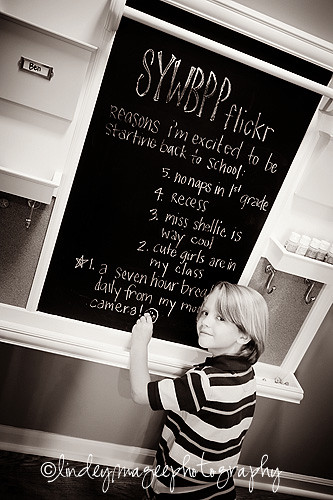 Ben
SYWBPP
flickr
Reasons i'm excited to be
starting back to school:
5. no naps in 1st grade
4. Recess
3. miss shellie is
way cool
2. cute girls are in
my class
1. a seven hour
daily from my
camera!
©lindeymageephotography